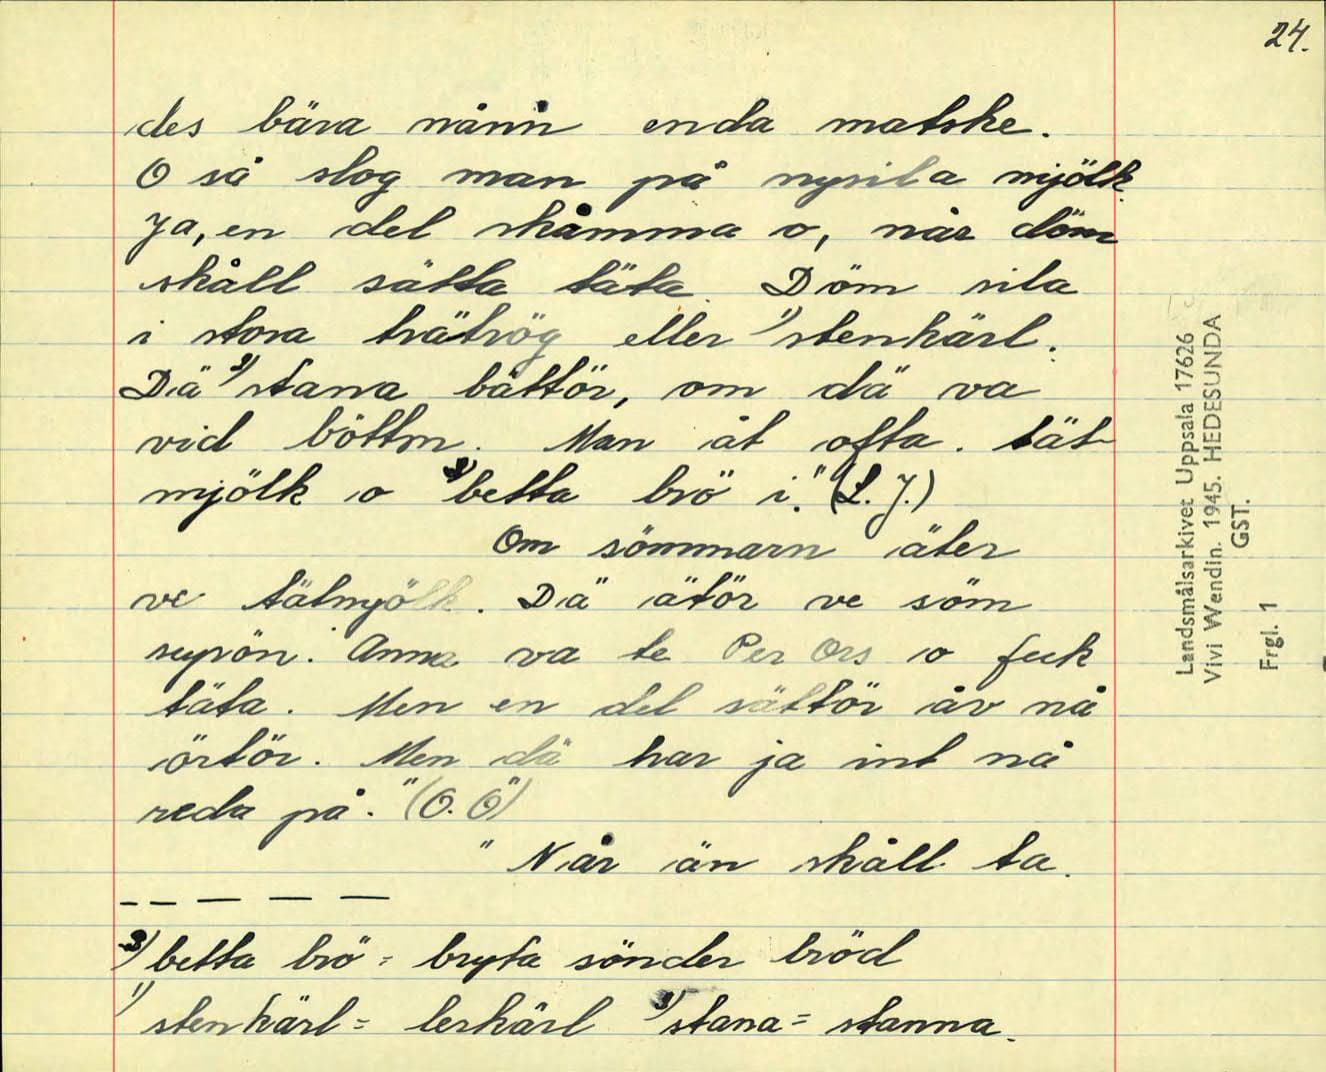 24.
des bära nånn enda matske.
O så slog man på nysila mjölk.
Ja, en del skåmma o, når döm
skåll sätta täta. Döm sila
i stora träträg eller 1) stenkärl.
Dä 2) stana båttör, om dä va
vid böttm. Man åt ofta. tät-
mjölk o 3) betta brö i." (L. J.)
Om sömmarn äter
ve tätmjölk. Dä ätör ve söm
supön. Anna va te Per Ors o feck
täta. Men en del sättör åv nå
örtör. Men dä har ja int nå
reda på." (O. Ö)
" Når än skåll ta.
3) betta brö = bryta sönder bröd
1) stenkärl = lerkärl 2) stana = stanna.
Landsmålsarkivet Uppsala 17626
Vivi Wendin. 1945. HEDESUNDA
GST.
Frgl. 1